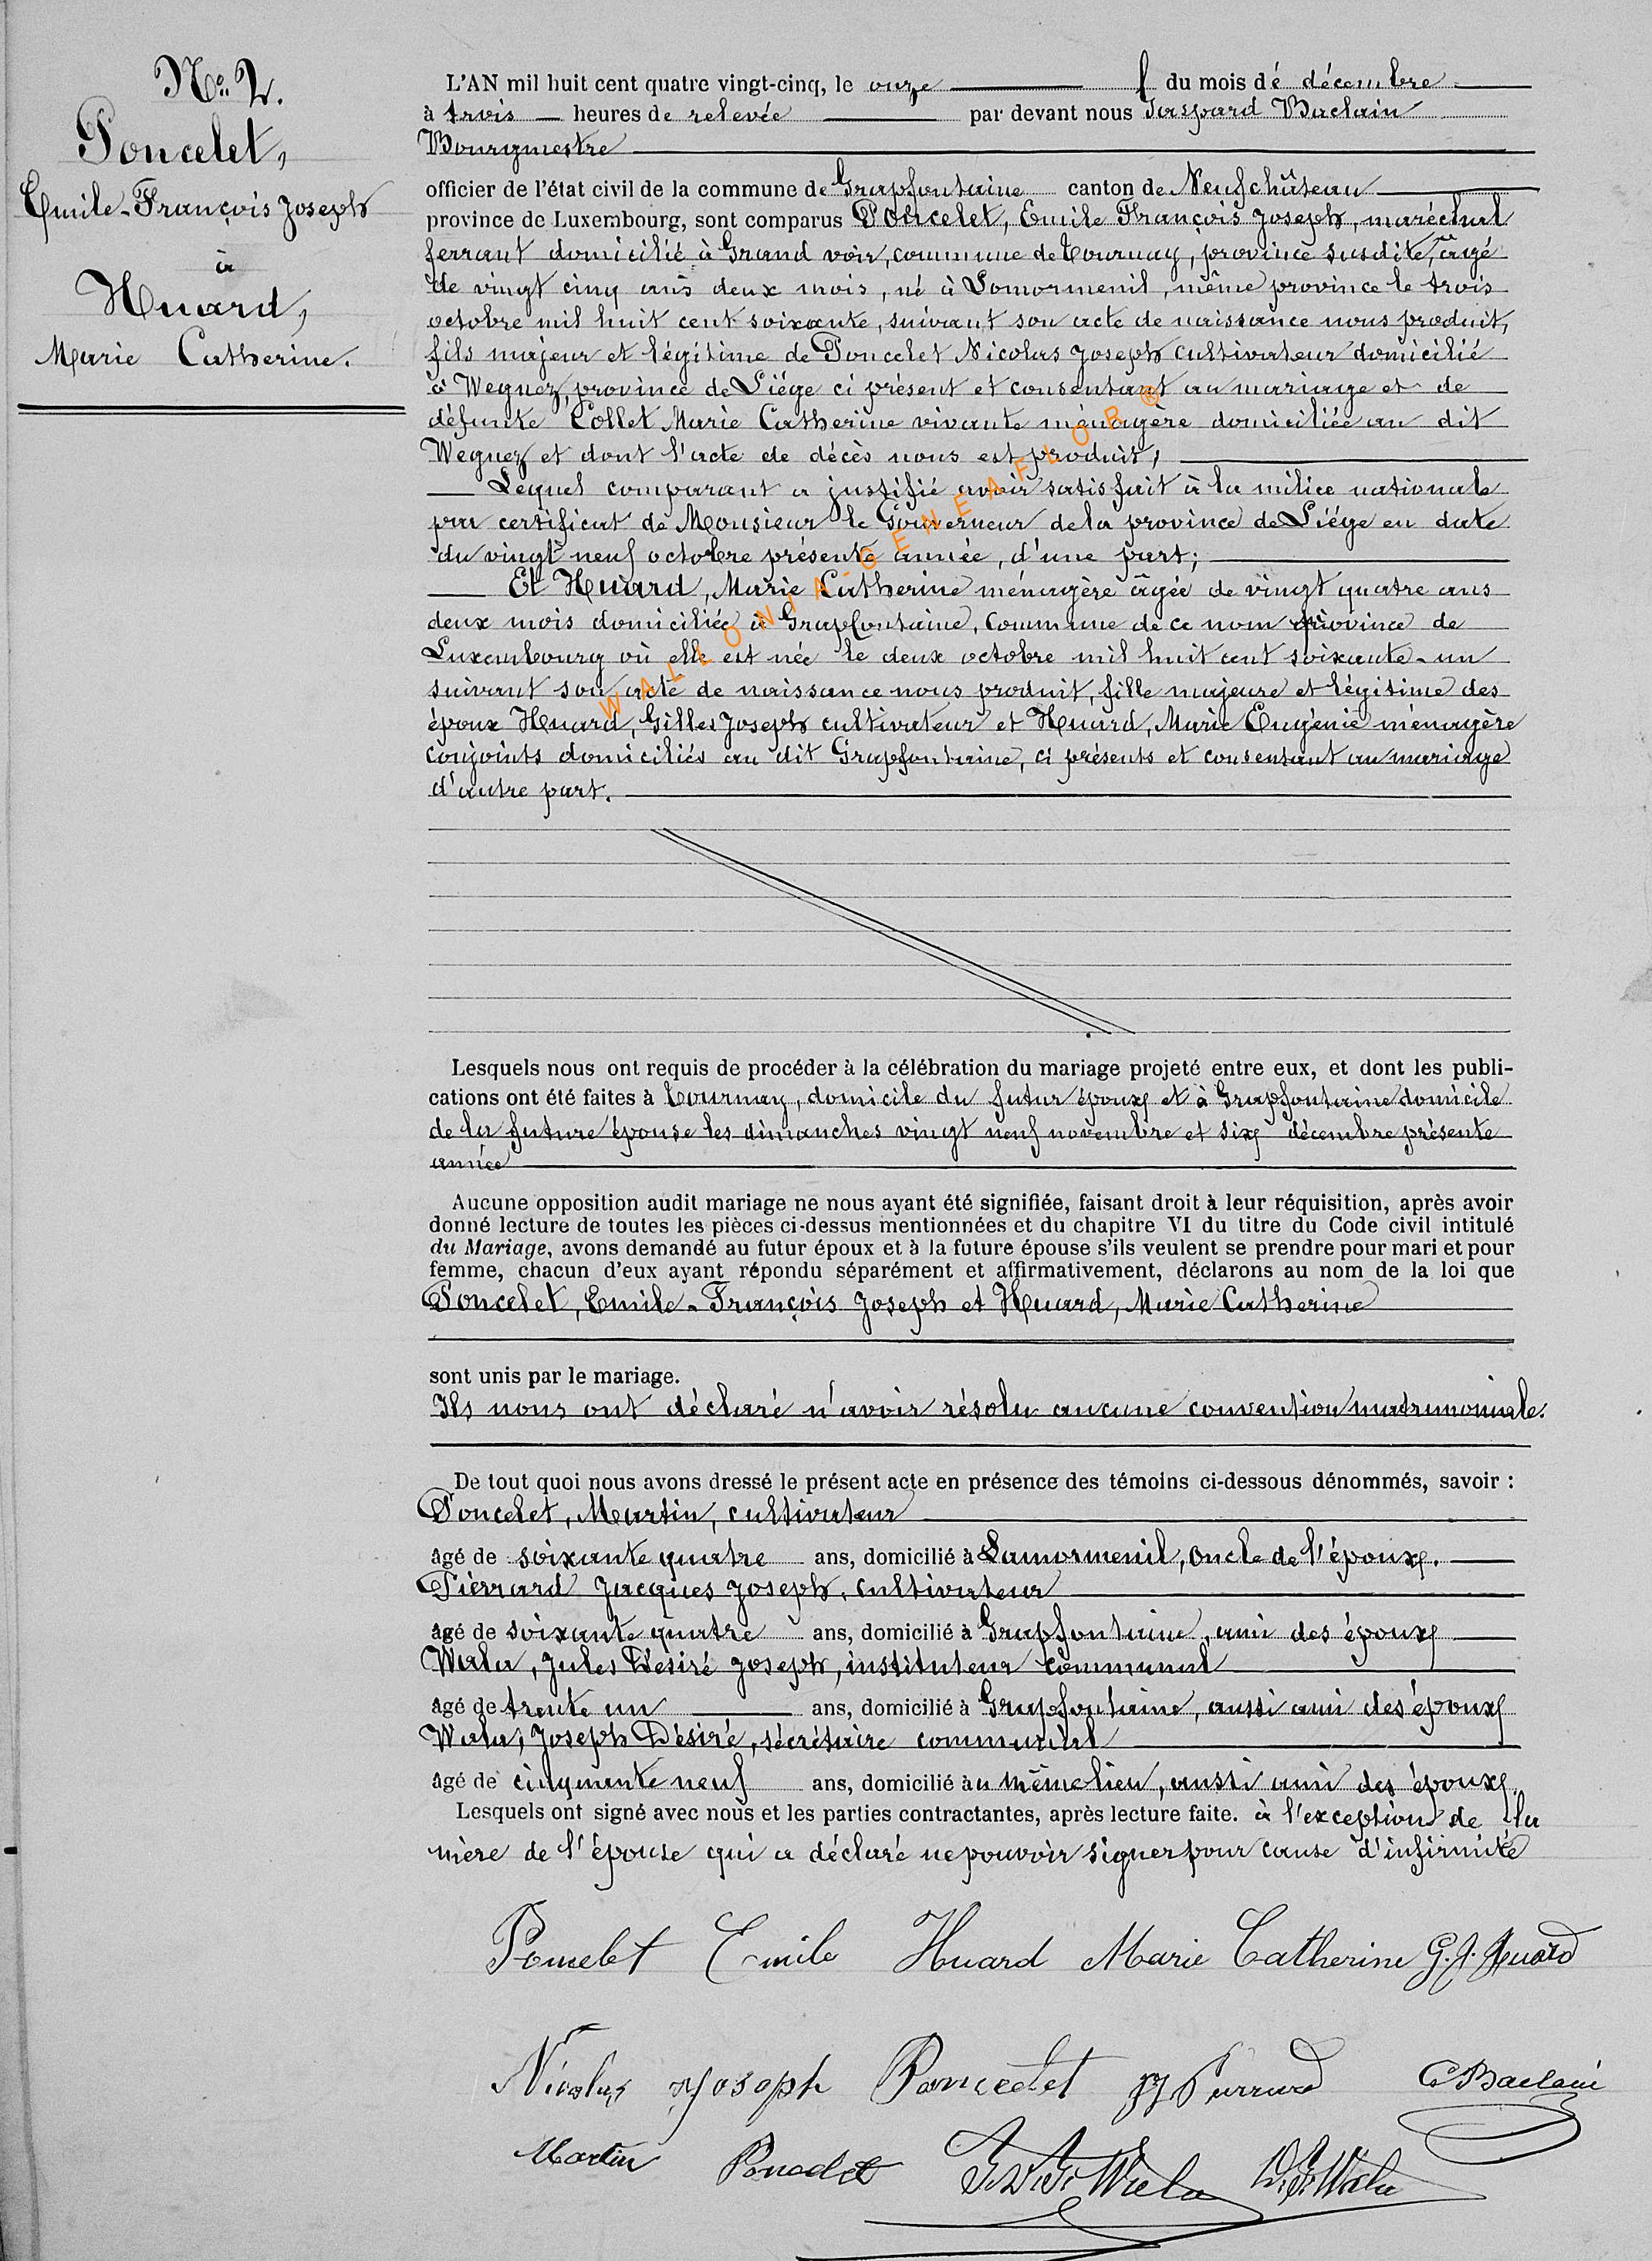 No. 2.
Poncelet,
Emile-François Joseph
à
Huard,
Marie Catherine.
L'AN mil huit cent quatre vingt-cinq, le onze du mois de décembre
à trois heures de relevée par devant nous Gaspard Baclain
Bourgmestre
officier de l'état civil de la commune de Grapfontaine canton de Neufchâteau
province de Luxembourg, sont comparus Poncelet, Emile François Joseph, maréchal
ferrant domicilié à Grand voir, commune de Tournay, province susdite, âgé
de vingt cinq ans deux mois, né à Lomormenil, même province le trois
octobre mil huit cent soixante, suivant son acte de naissance nous produit,
fils majeur et légitime de Poncelet Nicolas Joseph cultivateur domicilié
à Wegnez, province de Liége ci présent et consentant au mariage et de
défunte Collet Marie Catherine vivante ménagère domiciliée au dit
Wegnez et dont l'acte de décès nous est produit;
Lequel comparant a justifié avoir satisfait à la milice nationale
par certificat de Monsieur le Gouverneur de la province de Liége en date
du vingt neuf octobre présente année, d'une part;
Et Huard, Marie Catherine ménagère âgée de vingt quatre ans
deux mois domiciliée à Grapfontaine, Commune de ce nom province de
Luxembourg où elle est née le deux octobre mil huit cent soixante-un
suivant son acte de naissance nous produit, fille majeure et légitime des
époux Huard, Gilles Joseph cultivateur et Huard, Marie Eugénie ménagère
conjoints domiciliés au dit Grapfontaine, ci présents et consentant au mariage
d'autre part.
WALLONIA-GENEAFLOR®
Lesquels nous ont requis de procéder à la célébration du mariage projeté entre eux, et dont les publi-
cations ont été faites à Tournay, domicile du futur époux et à Grapfontaine domicile
de la future épouse les dimanches vingt neuf novembre et six décembre présente
année
Aucune opposition audit mariage ne nous ayant été signifiée, faisant droit à leur réquisition, après avoir
donné lecture de toutes les pièces ci-dessus mentionnées et du chapitre VI du titre du Code civil intitulé
du Mariage, avons demandé au futur époux et à la future épouse s'ils veulent se prendre pour mari et pour
femme, chacun d'eux ayant répondu séparément et affirmativement, déclarons au nom de la loi que
Poncelet, Emile-François Joseph et Huard, Marie Catherine
sont unis par le mariage.
Ils nous ont déclaré n'avoir résolu aucune convention matrimoniale.
De tout quoi nous avons dressé le présent acte en présence des témoins ci-dessous dénommés, savoir :
Poncelet, Martin, cultivateur
âgé de soixante quatre ans, domicilié à Lamormenil, oncle de l'époux.
Pierrard Jacques Joseph, cultivateur
âgé de soixante quatre ans, domicilié à Grapfontaine, ami des époux
Wala, Jules Désiré Joseph, instituteur communal
âgé de trente un ans, domicilié à Grapfontaine, aussi ami des époux
Wala, Joseph Désiré, sécrétaire communal
âgé de cinquante neuf ans, domicilié au même lieu, aussi ami des époux
Lesquels ont signé avec nous et les parties contractantes, après lecture faite. à l'exception de la
mère de l'épouse qui a déclaré ne pouvoir signer pour cause d'infirmité
Poncelet Emile Huard Marie Catherine G. J. Huard
Nicolas Joseph Poncelet JJ Pierrard G Baclain
Martin Poncelet J. D. J. Wala D. J. Wala